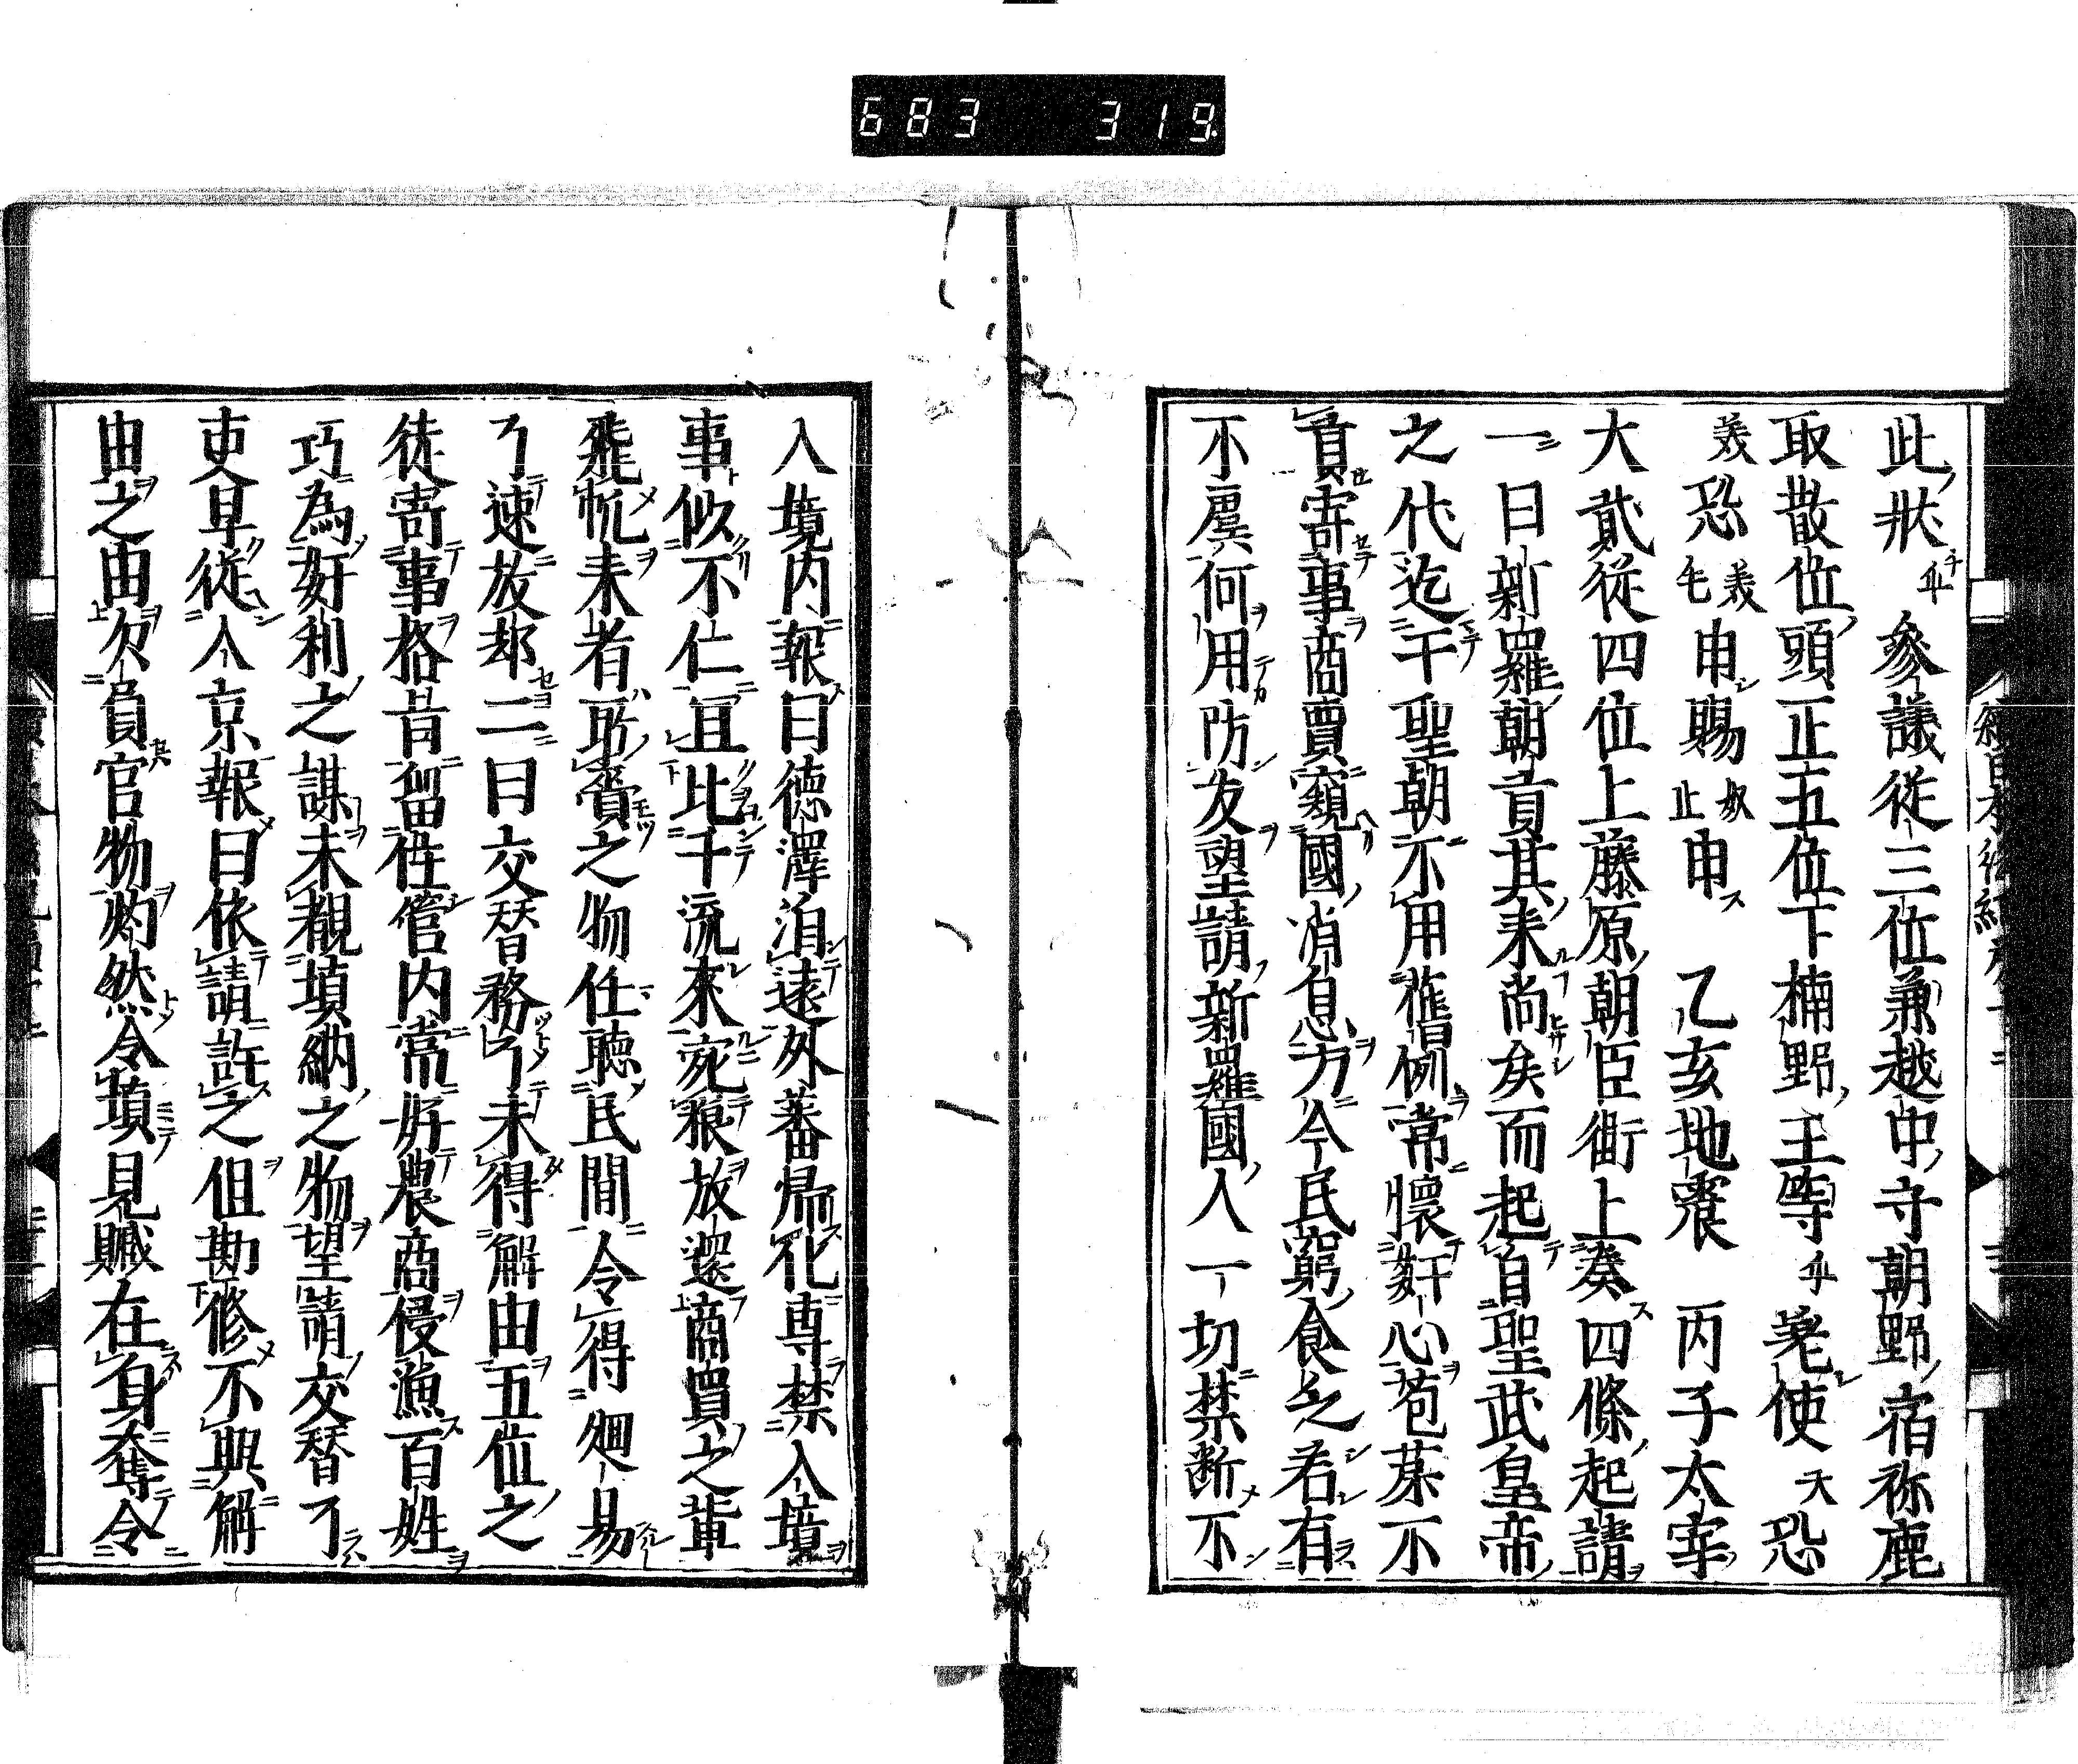 683 319
此狀 参議從三位兼越中守朝野宿祢鹿
取散位頭正五位下楠野王等 差使 天 恐
美恐 毛 美 申賜 奴 止 申 乙亥地震 丙子太宰
大貳從四位上藤原朝臣衛上奏四條起請
一曰新羅朝貢其来尚矣而起自聖武皇帝
之代迄于聖朝不用舊例常懷奸心苞苴不
貢寄事商賈窺國消息方今民窮食乏若有
不虞何用防夭望請新羅國人一切禁断不
入境内報曰德澤洎遠外蕃帰化専禁入境
事似不仁宜比于流來宛粮放還商賈之輩
飛帆来者所賷之物任聽民間令得廻易
了速放却二曰交替務了未得解由五位之
徒寄事格旨留住管内常好農商侵漁百姓
巧為奸利之謀未覩填納之物望請交替了
吏早從入京報曰依請許之但勘修不與解
由之由欠負官物灼然令填見贓在身奪令